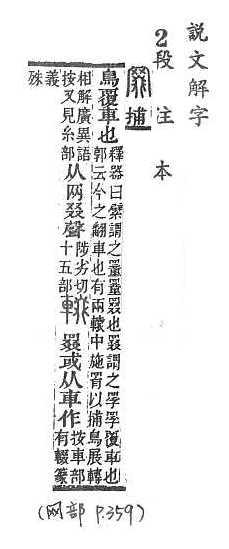 説文解字
2段注本
捕
鳥覆車也釋器曰繴謂之罿罿罬也罬謂之罦罦覆車也
郭云今之翻車也有兩轅中施罥以捕鳥展轉
相解廣異語
按又見糸部从网叕聲陟劣切
十五部罬或从車作按車部
有輟篆
義
殊
(网部 P.359)